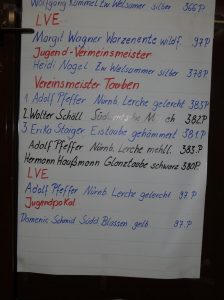 Wolfgang Kümmel Zw Welsumer silber 366 P
LVE.
Margit Wagner Warzenente wildf. 97.P
Jugend-Vermeinsmeister
Heidi Nagel Zw Welsumer silber 378 P
Vereinsmeister Tauben
1 Adolf Pfeffer Nürnb. Lerche gelercht 383 P
2. Wolter Schöll ch 382 P
3 Erika Starger Eistaube gehämmert 381 P
Adolf Pfeffer Nürnb. Lerche mehll. 383.P
Hermann Haußmann Glanztaube schwarz 380 P
LVE.
Adolf Pfeffer Nürnb. Lerche gelercht 97.P
Jugendpokal
Domenic Schmid Südd Blassen gelb 97.P